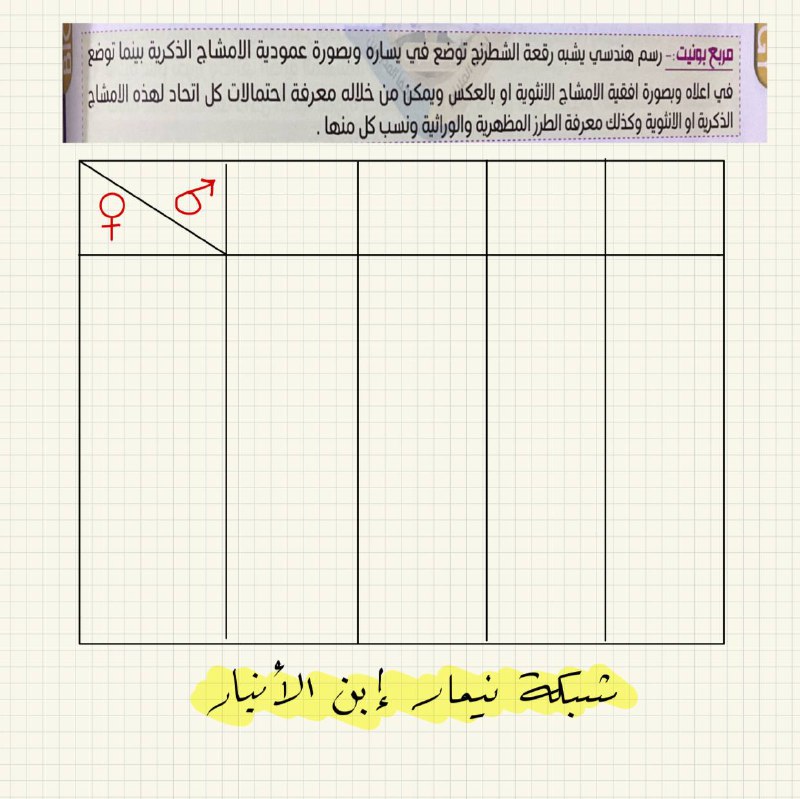 مربع بونيت :- رسم هندسي يشبه رقعة الشطرنج توضع في يساره وبصورة عمودية الامشاج الذكرية بينما توضع
في اعلاه وبصورة افقية الامشاج الانثوية او بالعكس ويمكن من خلاله معرفة احتمالات كل اتحاد لهذه الامشاج
الذكرية او الانثوية وكذلك معرفة الطرز المظهرية والوراثية ونسب كل منها .
♀ ♂
شبكة نيمار إبن الأنيار